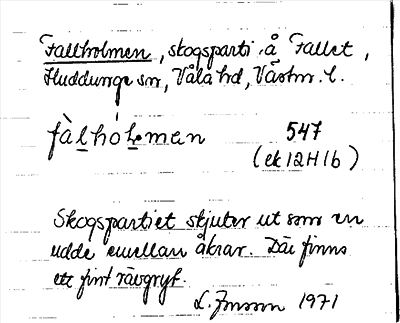 Fallholmen, skogsparti å Fallet,
Huddunge sn, Våla hd, Västm. l.
fàlhólmen 547
(ek 12H1b)
Skogspartiet skjuter ut som en
udde emellan åkrar. Där finns
ett fint rävgryt.
L. Jonsson 1971